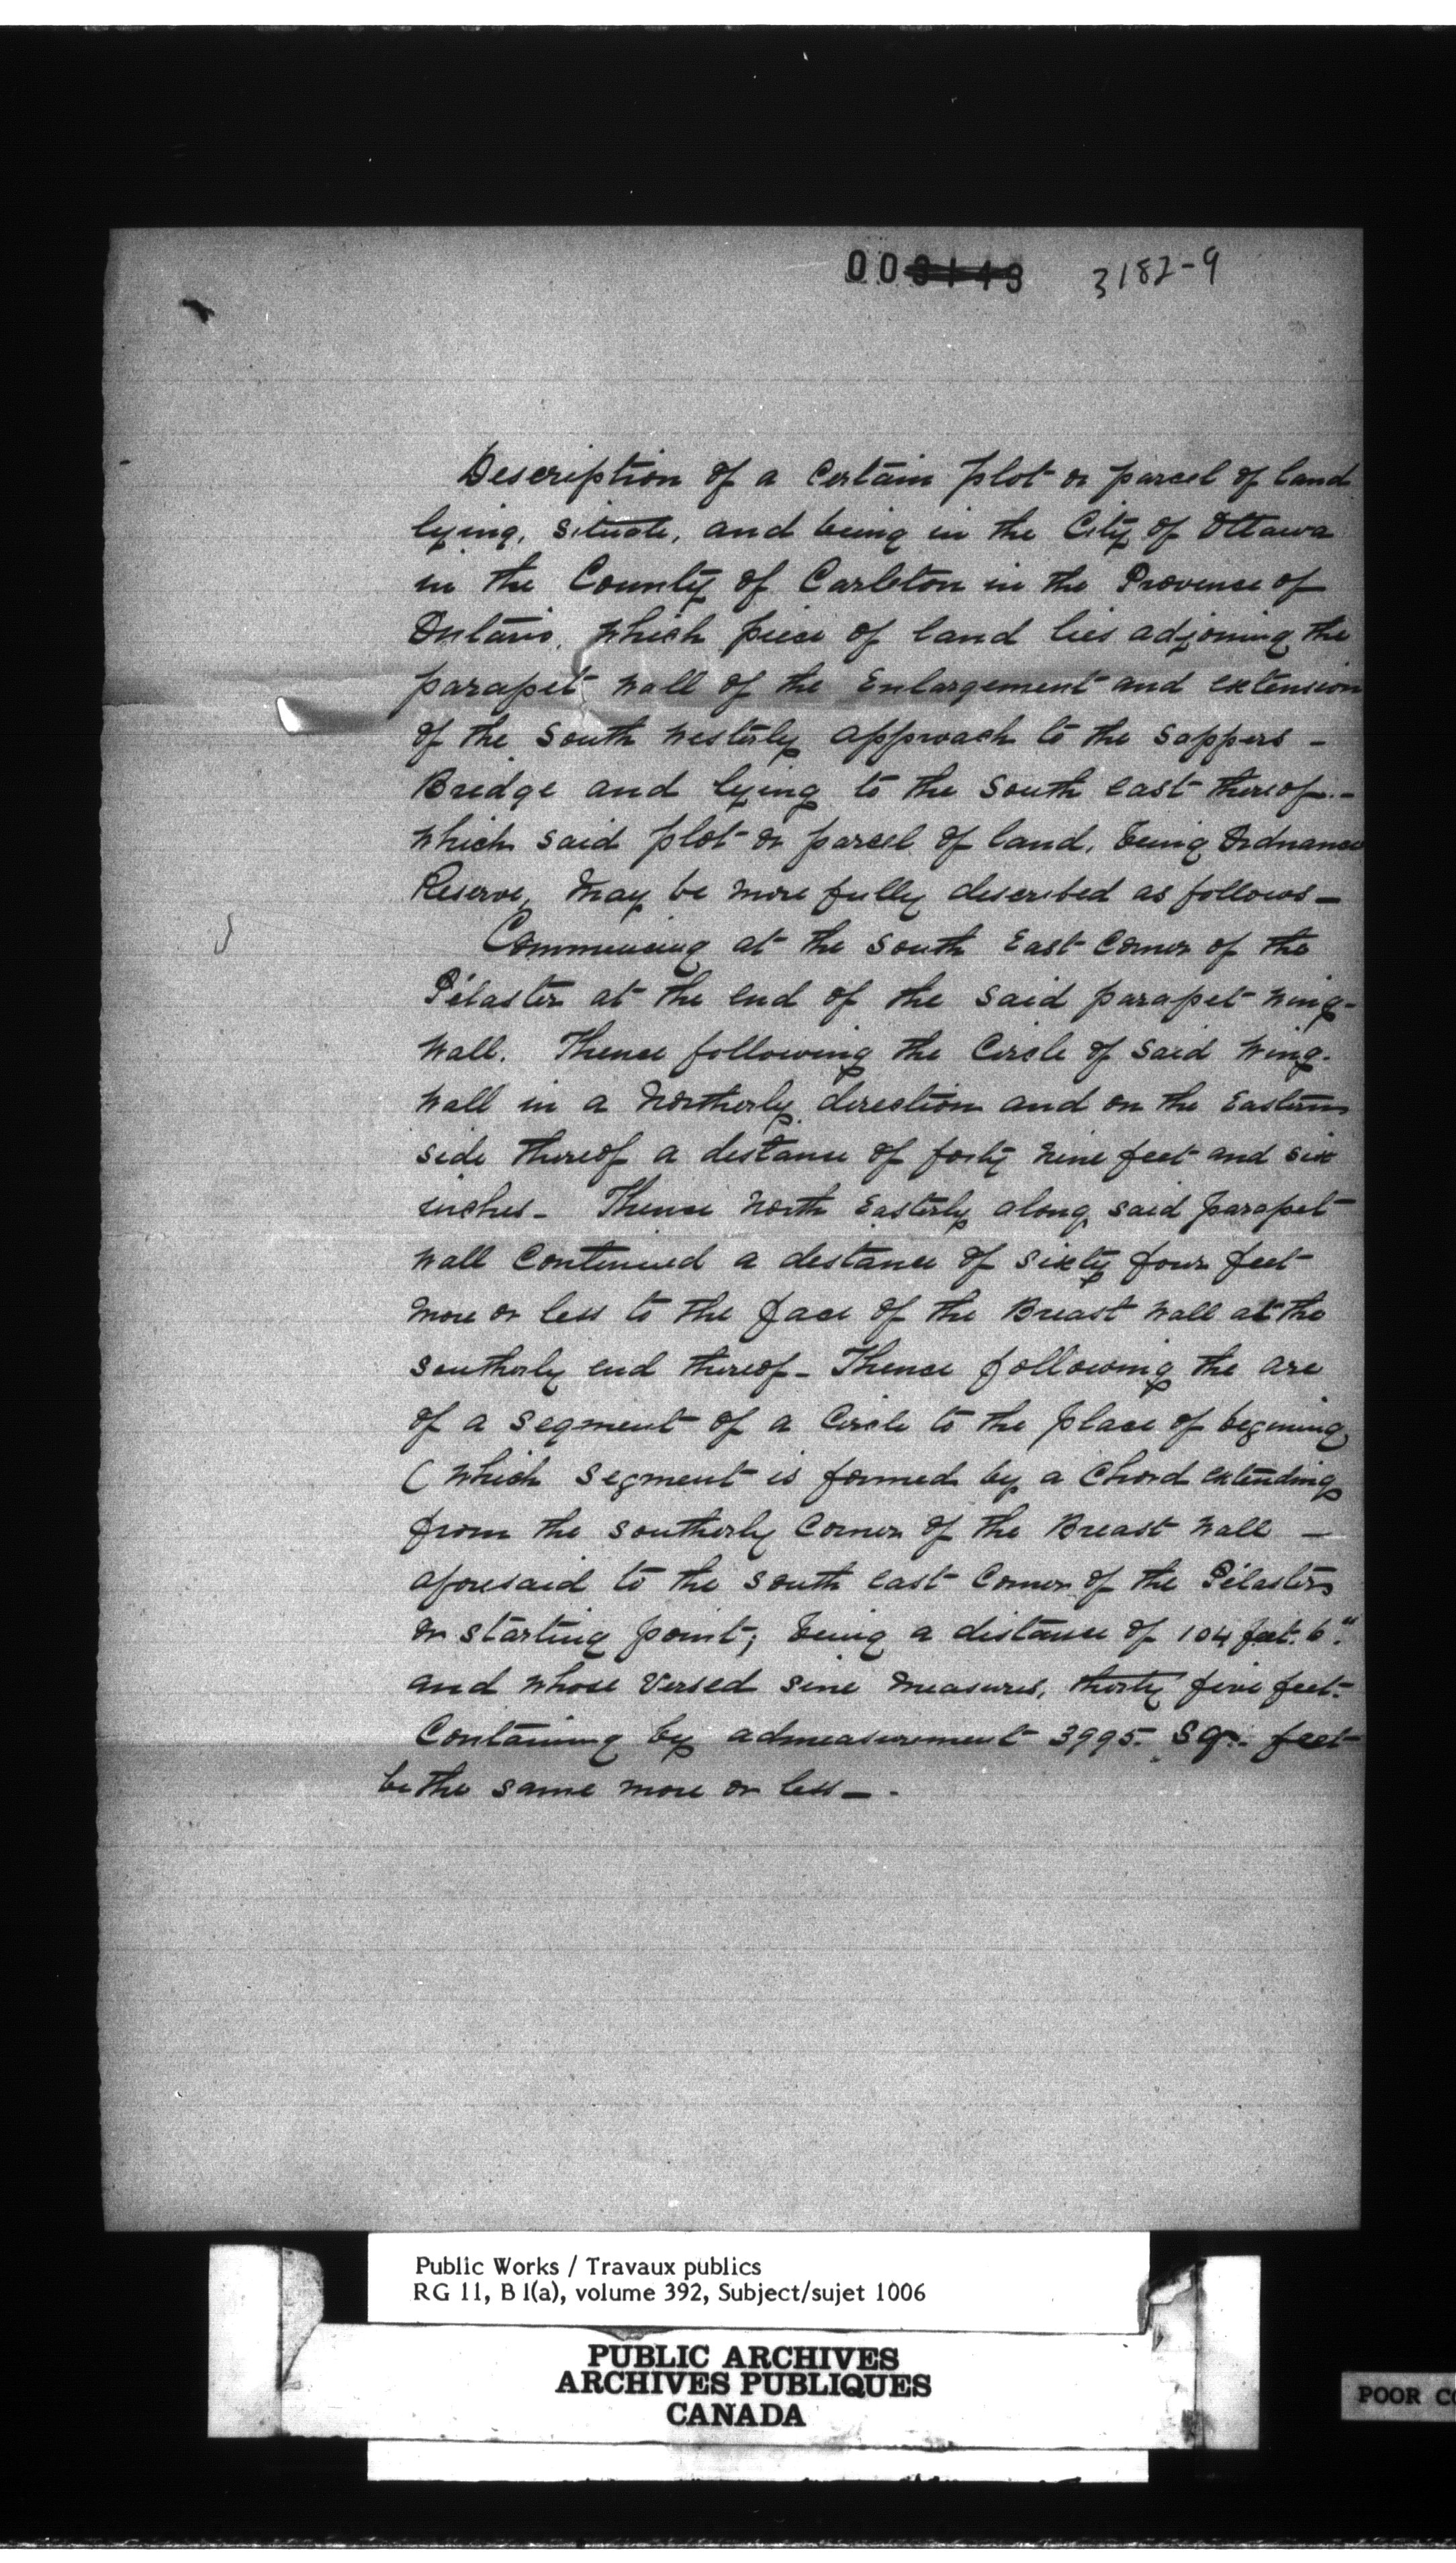 003143 3182-9
Description of a Certain plot or parcel of land
lying, situate, and being in the City of Ottawa
in the County of Carleton in the Provence of
Ontario, which piece of land lies adjoning the
parapet wall of the Enlargement and extension
of the South Westerly approach to the Sappers -
Bridge and lying to the South east thereof. -
which said plot or parcel of land, being Ordnance
Reserve, may be more fully described as follows -
Commencing at the South East Corner of the
Pilaster at the end of the said parapet wing-
wall. Thence following the Circle of said wing-
wall in a Northerly direction and on the Eastern
side thereof a distance of forty nine feet and six
inches - Thence North Easterly along said parapet
wall Continued a distance of sixty four feet
more or less to the face of the Breast wall at the
southerly end thereof - Thence following the arc
of a segment of a Circle to the place of begining
( which segment is formed by a Chord extending
from the southerly Corner of the Breast wall -
aforesaid to the south east Corner of the Pilaster
or starting point; being a distance of 104 feet. 6".
and whose Versed sine measures, thirty five feet.
Containing by admeasurement 3995. Sq. feet
be the same more or less - .
Public Works / Travaux publics
RG 11, B 1(a), volume 392, Subject/sujet 1006
PUBLIC ARCHIVES
ARCHIVES PUBLIQUES
CANADA
POOR